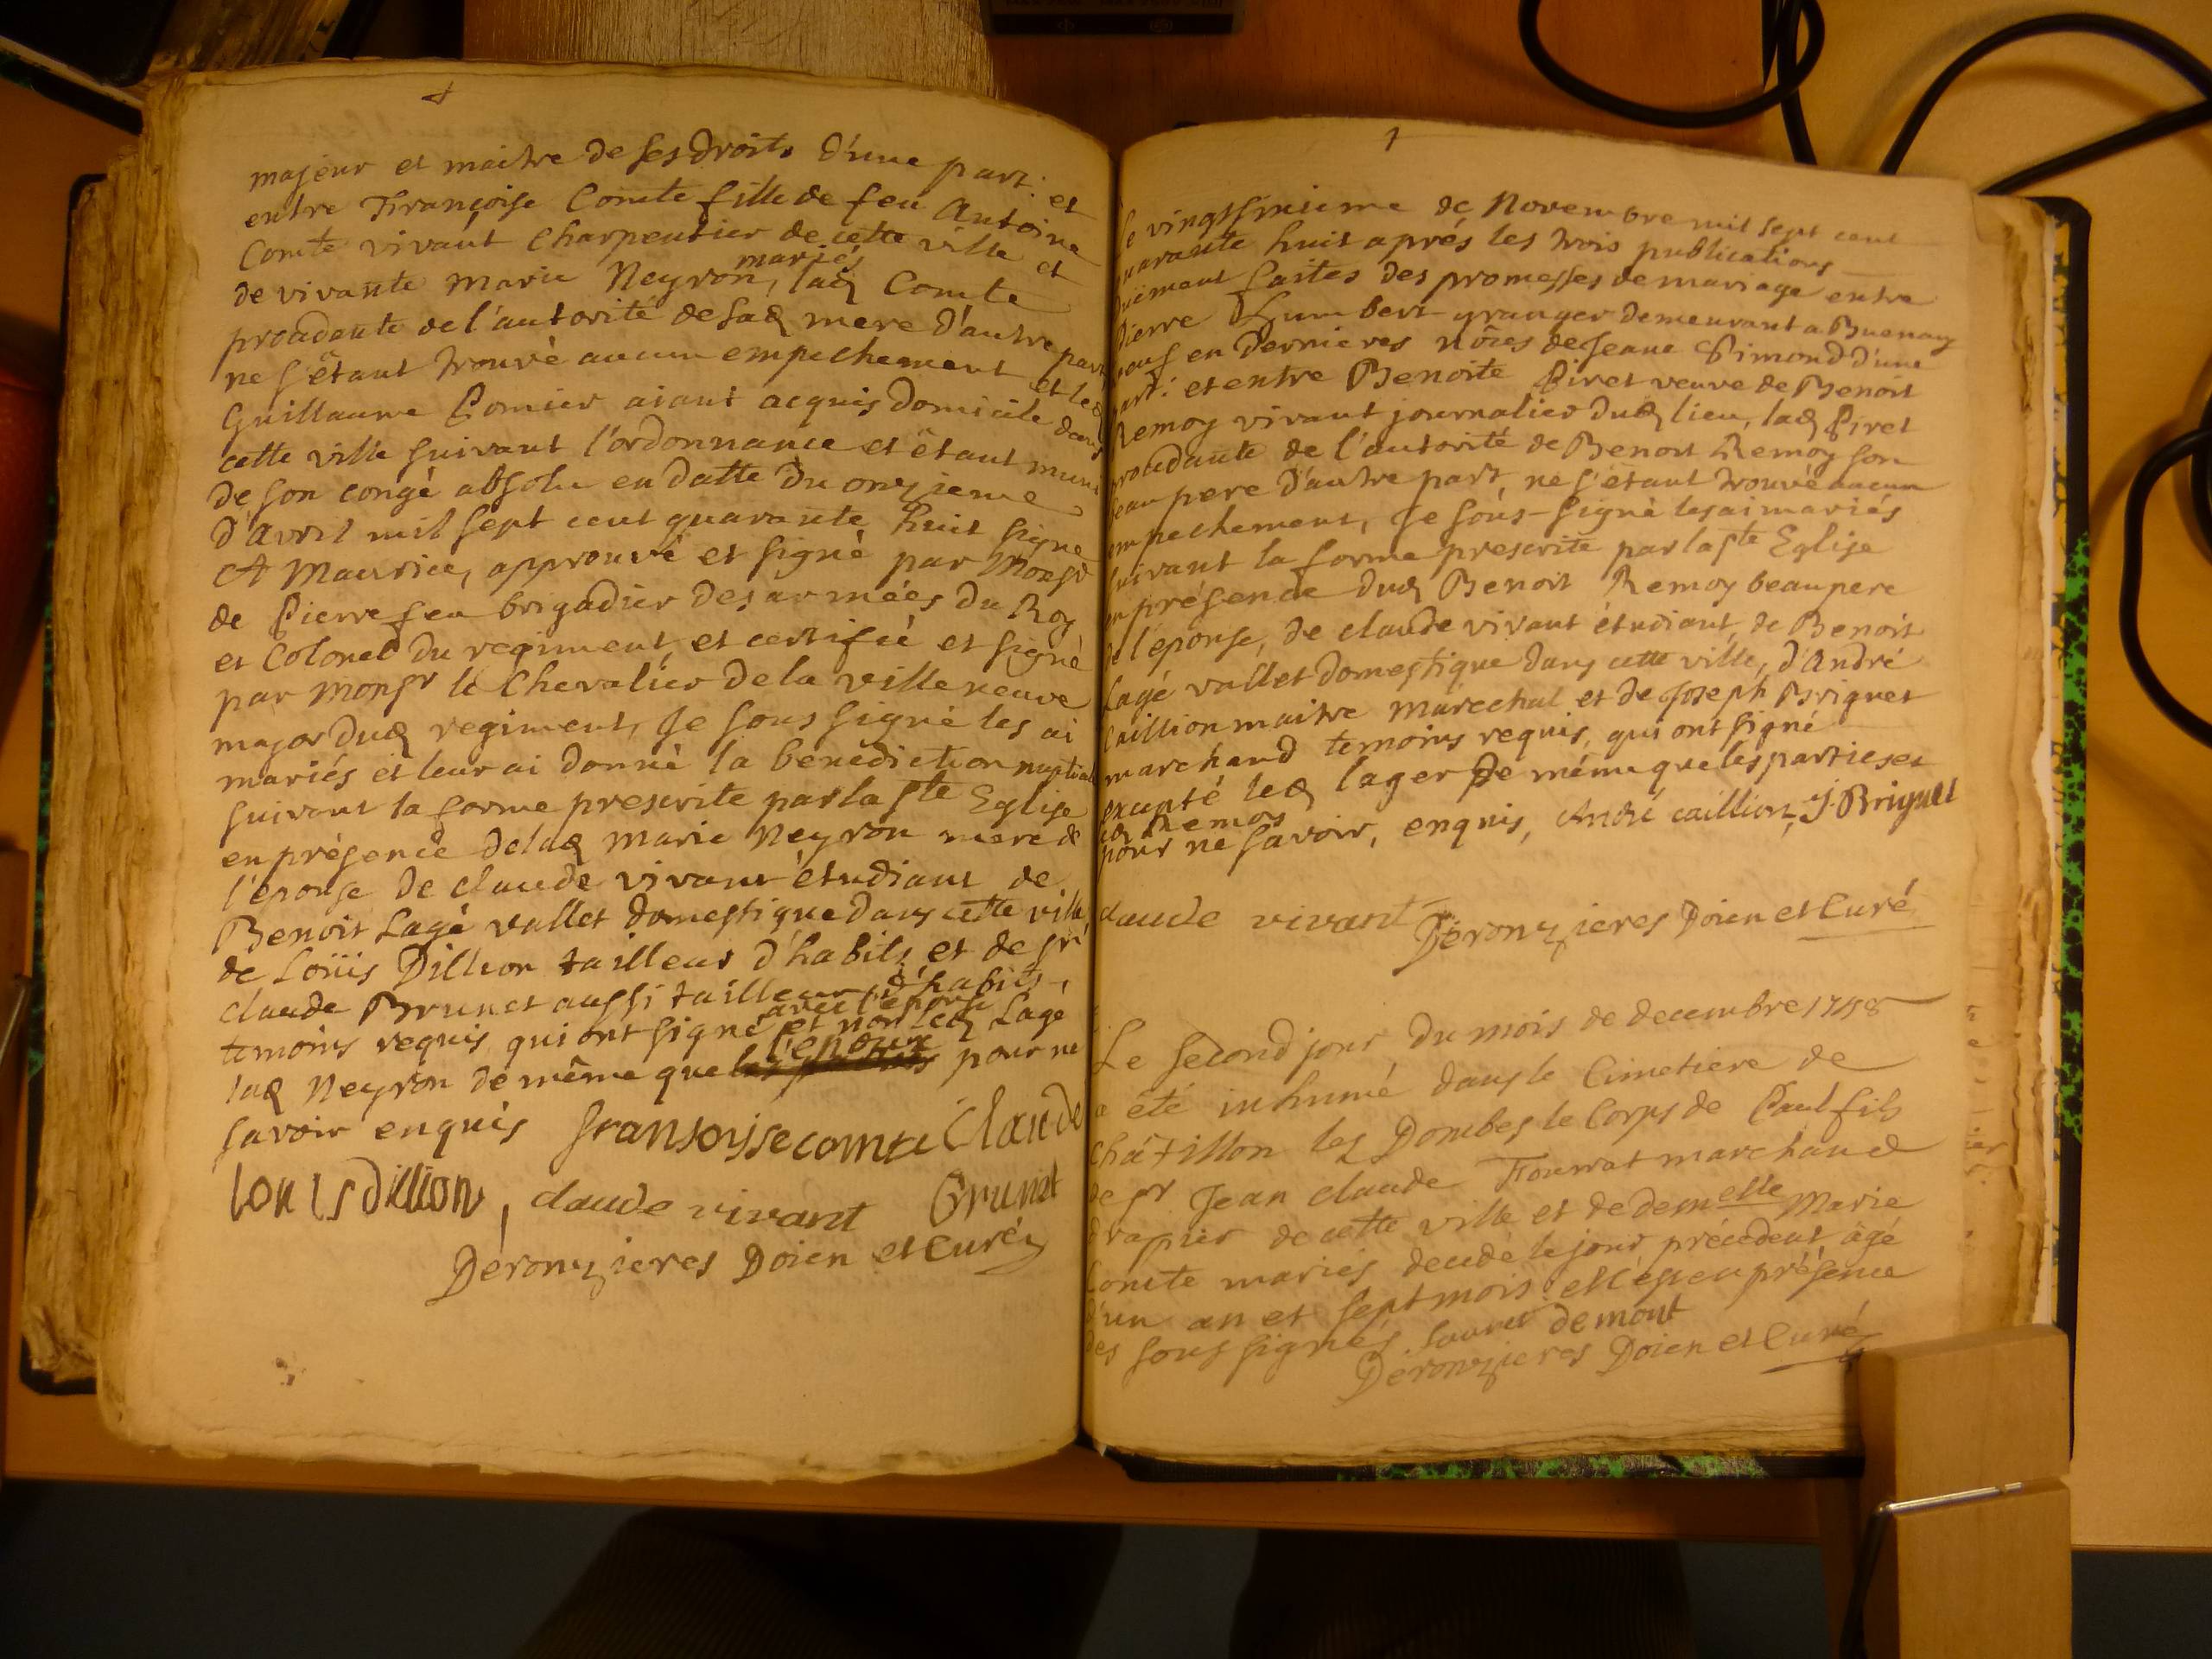 majeur et maitre de ses droits d'une part: et
entre Françoise Comte fille de feu Antoine
Comte vivant Charpentier de cette ville et
de vivante marie Neyron mariés, lad Comte
procedante de l'autorité de sad mere d'autre part
ne s'étant trouvé aucun empechement et led
Guillaume Pomier aiant acquis domicile dans
cette ville suivant l'ordonnance et étant muni
de son congé absolu en datte du onzieme
d'avril mil sept cent quarante huit signé
A Maurice, approuvé et signé par Monsr
de Pierrefeu brigadier des armées du Roy
et Colonel du regiment, et certifié et signé
par monsr le Chevalier de la ville neuve
major dud regiment, Je sous signé les ai
mariés et leur ai donné la benediction nuptiale
suivant la forme prescrite par la ste Eglise
en présence de lad marie Neyron mere de
l'epouse de claude vivant étudiant de
Benoit Lagé vallet domestique dans cette ville
de Loüis Dillion tailleur d'habits et de sr
claude Brunet aussi tailleur d'habits,
temoins requis qui ont signé avec l'epouse et non led Lagé
lad Neyron de même que l'epoux pour ne
savoir enquis fransoisse comte Claude
louis dillion, claude vivant Brunet
Déronzieres Doien et Curé
1
Le vingt sixieme de Novembre mil sept cent
quarante huit aprés les trois publications
duëment faites des promesses de mariage entre
Pierre Humbert granger demeurant a Buenay
veuf en dernieres nôces de Jeane Pimond d'une
part: et entre Benoite Piret veuve de Benoit
Remoy vivant journalier dud lieu, lad Piret
procedante de l'autorité de Benoit Remoy son
beau pere d'autre part, ne s'étant trouvé aucun
empechement, Je sous-signé les ai mariés
suivant la forme prescrite par la ste Eglise
en présence dud Benoit Remoy beau pere
de l'epouse, de claude vivant étudiant, de Benoit
Lagé vallet domestique dans cette ville, d'André
Caillion maitre maréchal et de Joseph Briguet
marchand temoins requis, qui ont signé
excepté led lager de même que les parties et
led Remoy
pour ne savoir, enquis, André caillion, J. Briguet
claude vivant Déronzieres Doien et Curé
Le second jour du mois de decembre 1748
a été inhumé dans le Cimetiere de
Châtillon les Dombes le Corps de Paul fils
de sr Jean claude Fourrat marchand
drapier de cette ville et de demelle Marie
Comte mariés, decedé le jour précedent âgé
d'un an et sept mois: et ce en présence
des sous signés demont
Déronzieres Doien et Curé